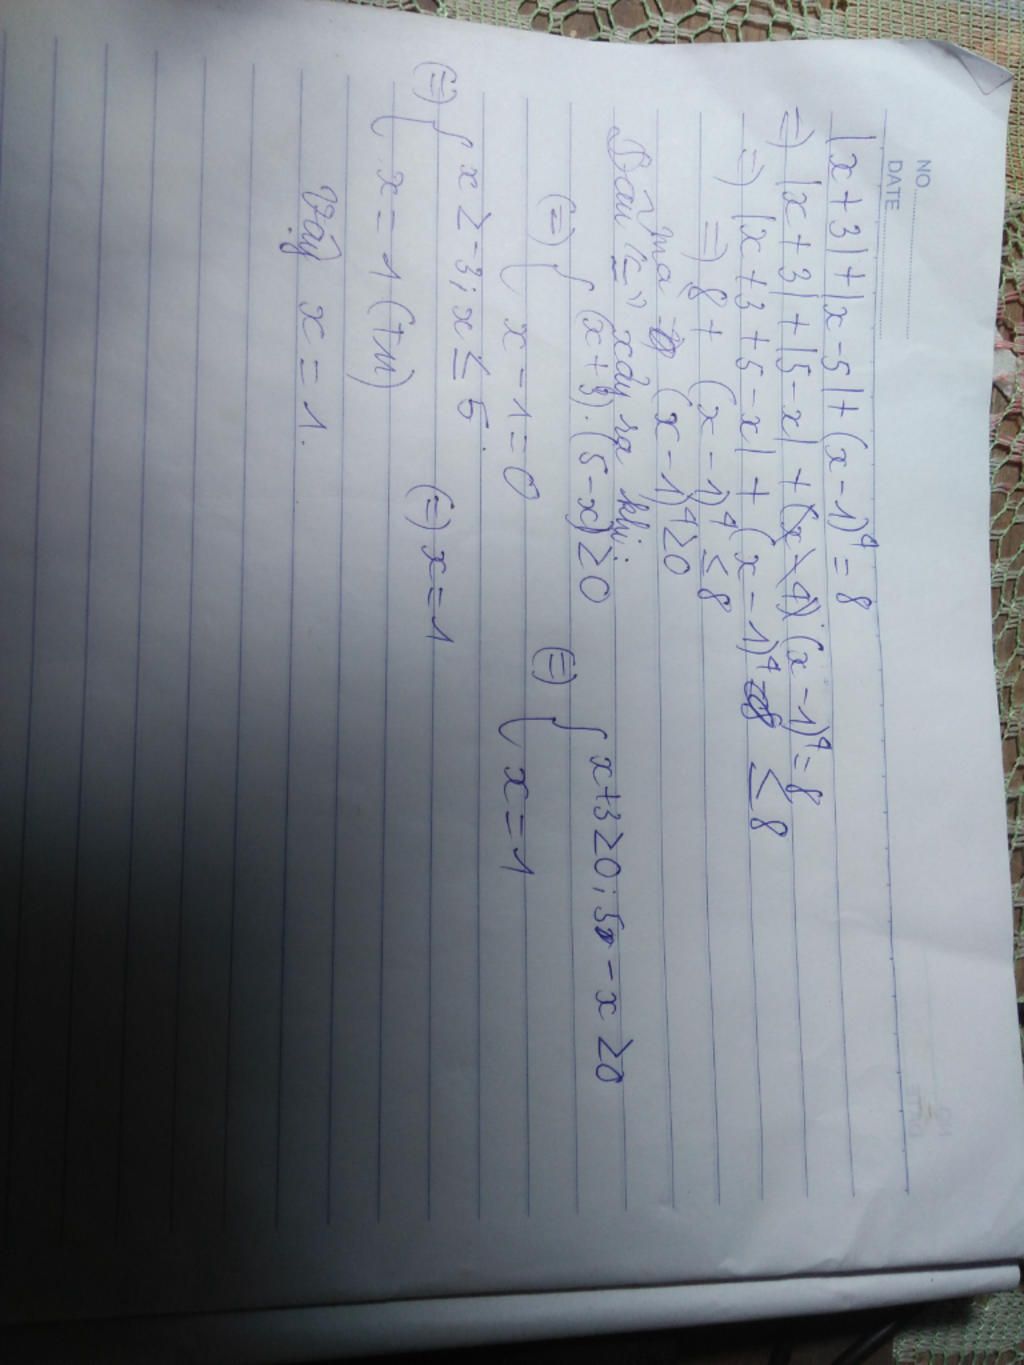 NO.
DATE
|x+3|+|x-5|+(x-1)⁴=8
=) |x+3|+|5-x|+(x-1)⁴=8
=) |x+3+5-x|+(x-1)⁴ ≤8
=) 8+ (x-1)⁴ ≤8
mà (x-1)⁴≥0
Dấu "=" xảy ra khi:
(=) { (x+3).(5-x)≥0 (=) { x+3≥0; 5-x≥0
x-1=0 x=1
(=) { x≥-3; x≤5. (=) x=1
x=1 (TM)
Vậy x=1.